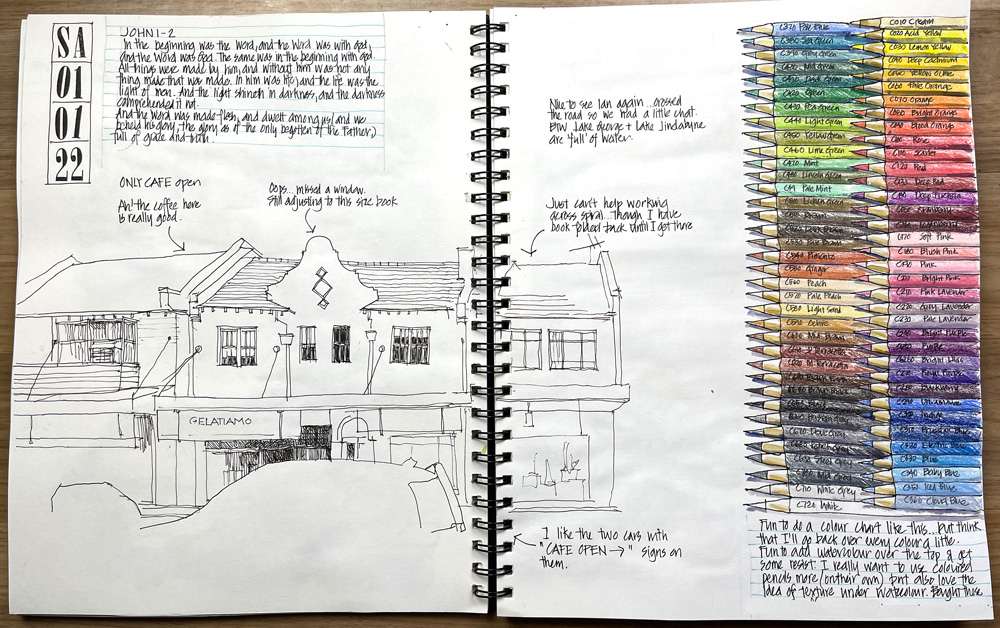 SA
01
01
22
JOHN 1-2
In the beginning was the Word, and the Word was with God,
and the Word was God. The same was in the beginning with God.
All things were made by him, and without him was not any
thing made that was made. In him was life, and the life was the
light of men. And the light shineth in darkness, and the darkness
comprehended it not.
And the Word was made flesh, and dwelt among us (and we
beheld his glory, the glory as of the only begotten of the Father,)
full of grace and truth.
ONLY CAFE open
Ah! the coffee here
is really good.
Oops... missed a window.
Still adjusting to this size book
GELATIAMO
Nice to see Ian again... crossed
the road so we had a little chat.
BTW Lake George + Lake Jindabyne
are 'full' of water.
Just can't help working
across spiral... Though I have
book folded back until I get there
I like the two cars with
"CAFE OPEN →" signs on
them.
C370 Pale Blue
C380 Sea Green
C390 Grey Green
Mid Green
Dark Green
Green
C430 Pea Green
C440 Light Green
C450 Yellow Green
C460 Lime Green
C470 Mint
Lincoln Green
Pale Mint
Lichen Green
Brown
Dark Brown
Pale Brown
C540 Pimento
C550 Ginger
C560 Peach
C570 Pale Peach
C580 Light Sand
C590 Ochre
Mid Brown
Terracotta
Black
Dove Grey
Steel Grey
C710 White Grey
C720 White
C010 Cream
C020 Acid Yellow
C030 Lemon Yellow
C040 Deep Cadmium
C050 Yellow Ochre
C060 Pale Orange
C070 Orange
C080 Bright Orange
C090 Blood Orange
C100 Rose
C110 Scarlet
C120 Red
Dark Red
Deep Fuchsia
Cranberry
C170 Soft Pink
C180 Blush Pink
C190 Pink
C200 Bright Pink
C210 Pink Lavender
C220 Grey Lavender
C230 Pale Lavender
C240 Bright Purple
Purple
C260 Bright Lilac
Royal Purple
Ultramarine
Indigo
Prussian Blue
C320
C330 Blue
C340 Baby Blue
C350 Iced Blue
C360 Cloud Blue
Fun to do a colour chart like this... but think
that I'll go back over every colour a little.
Fun to add watercolour over the top & get
some resist. I really want to use coloured
pencils more (on their own) but also love the
idea of texture under watercolour. Bought these